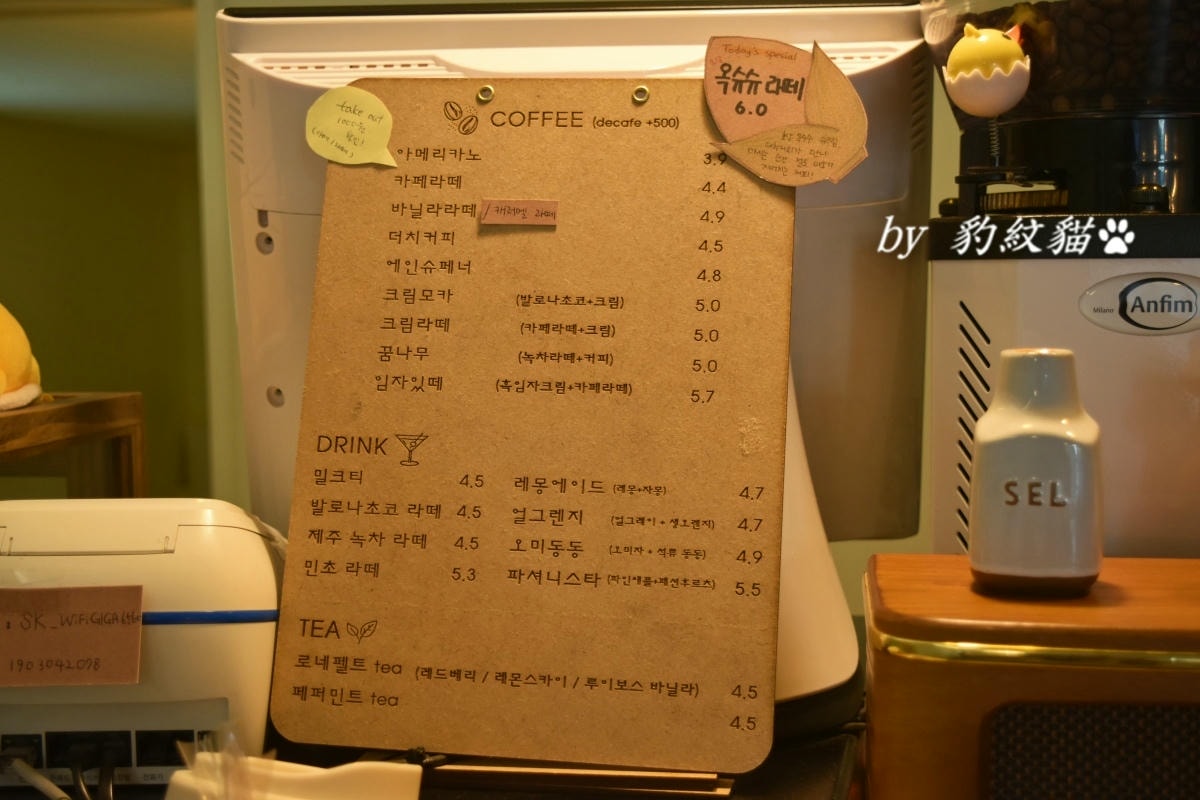 take out
Today's special
옥슈슈 라떼
6.0
COFFEE (decafe +500)
아메리카노 3.9
카페라떼 4.4
바닐라라떼 / 캐러멜 라떼 4.9
더치커피 4.5
에인슈페너 4.8
크림모카 (발로나초코+크림) 5.0
크림라떼 (카페라떼+크림) 5.0
꿈나무 (녹차라떼+커피) 5.0
임자있떼 (흑임자크림+카페라떼) 5.7
DRINK
밀크티 4.5
발로나초코 라떼 4.5
제주 녹차 라떼 4.5
민초 라떼 5.3
레몽에이드 (레몽+자몽) 4.7
얼그렌지 (얼그레이 + 생오렌지) 4.7
오미동동 (오미자 + 석류 동동) 4.9
파셔니스타 (파인애플+패션후르츠) 5.5
TEA
로네펠트 tea (레드베리 / 레몬스카이 / 루이보스 바닐라) 4.5
페퍼민트 tea 4.5
by 豹紋貓
Milano Anfim
SEL
: SK_WiFiGIGA
1903042078